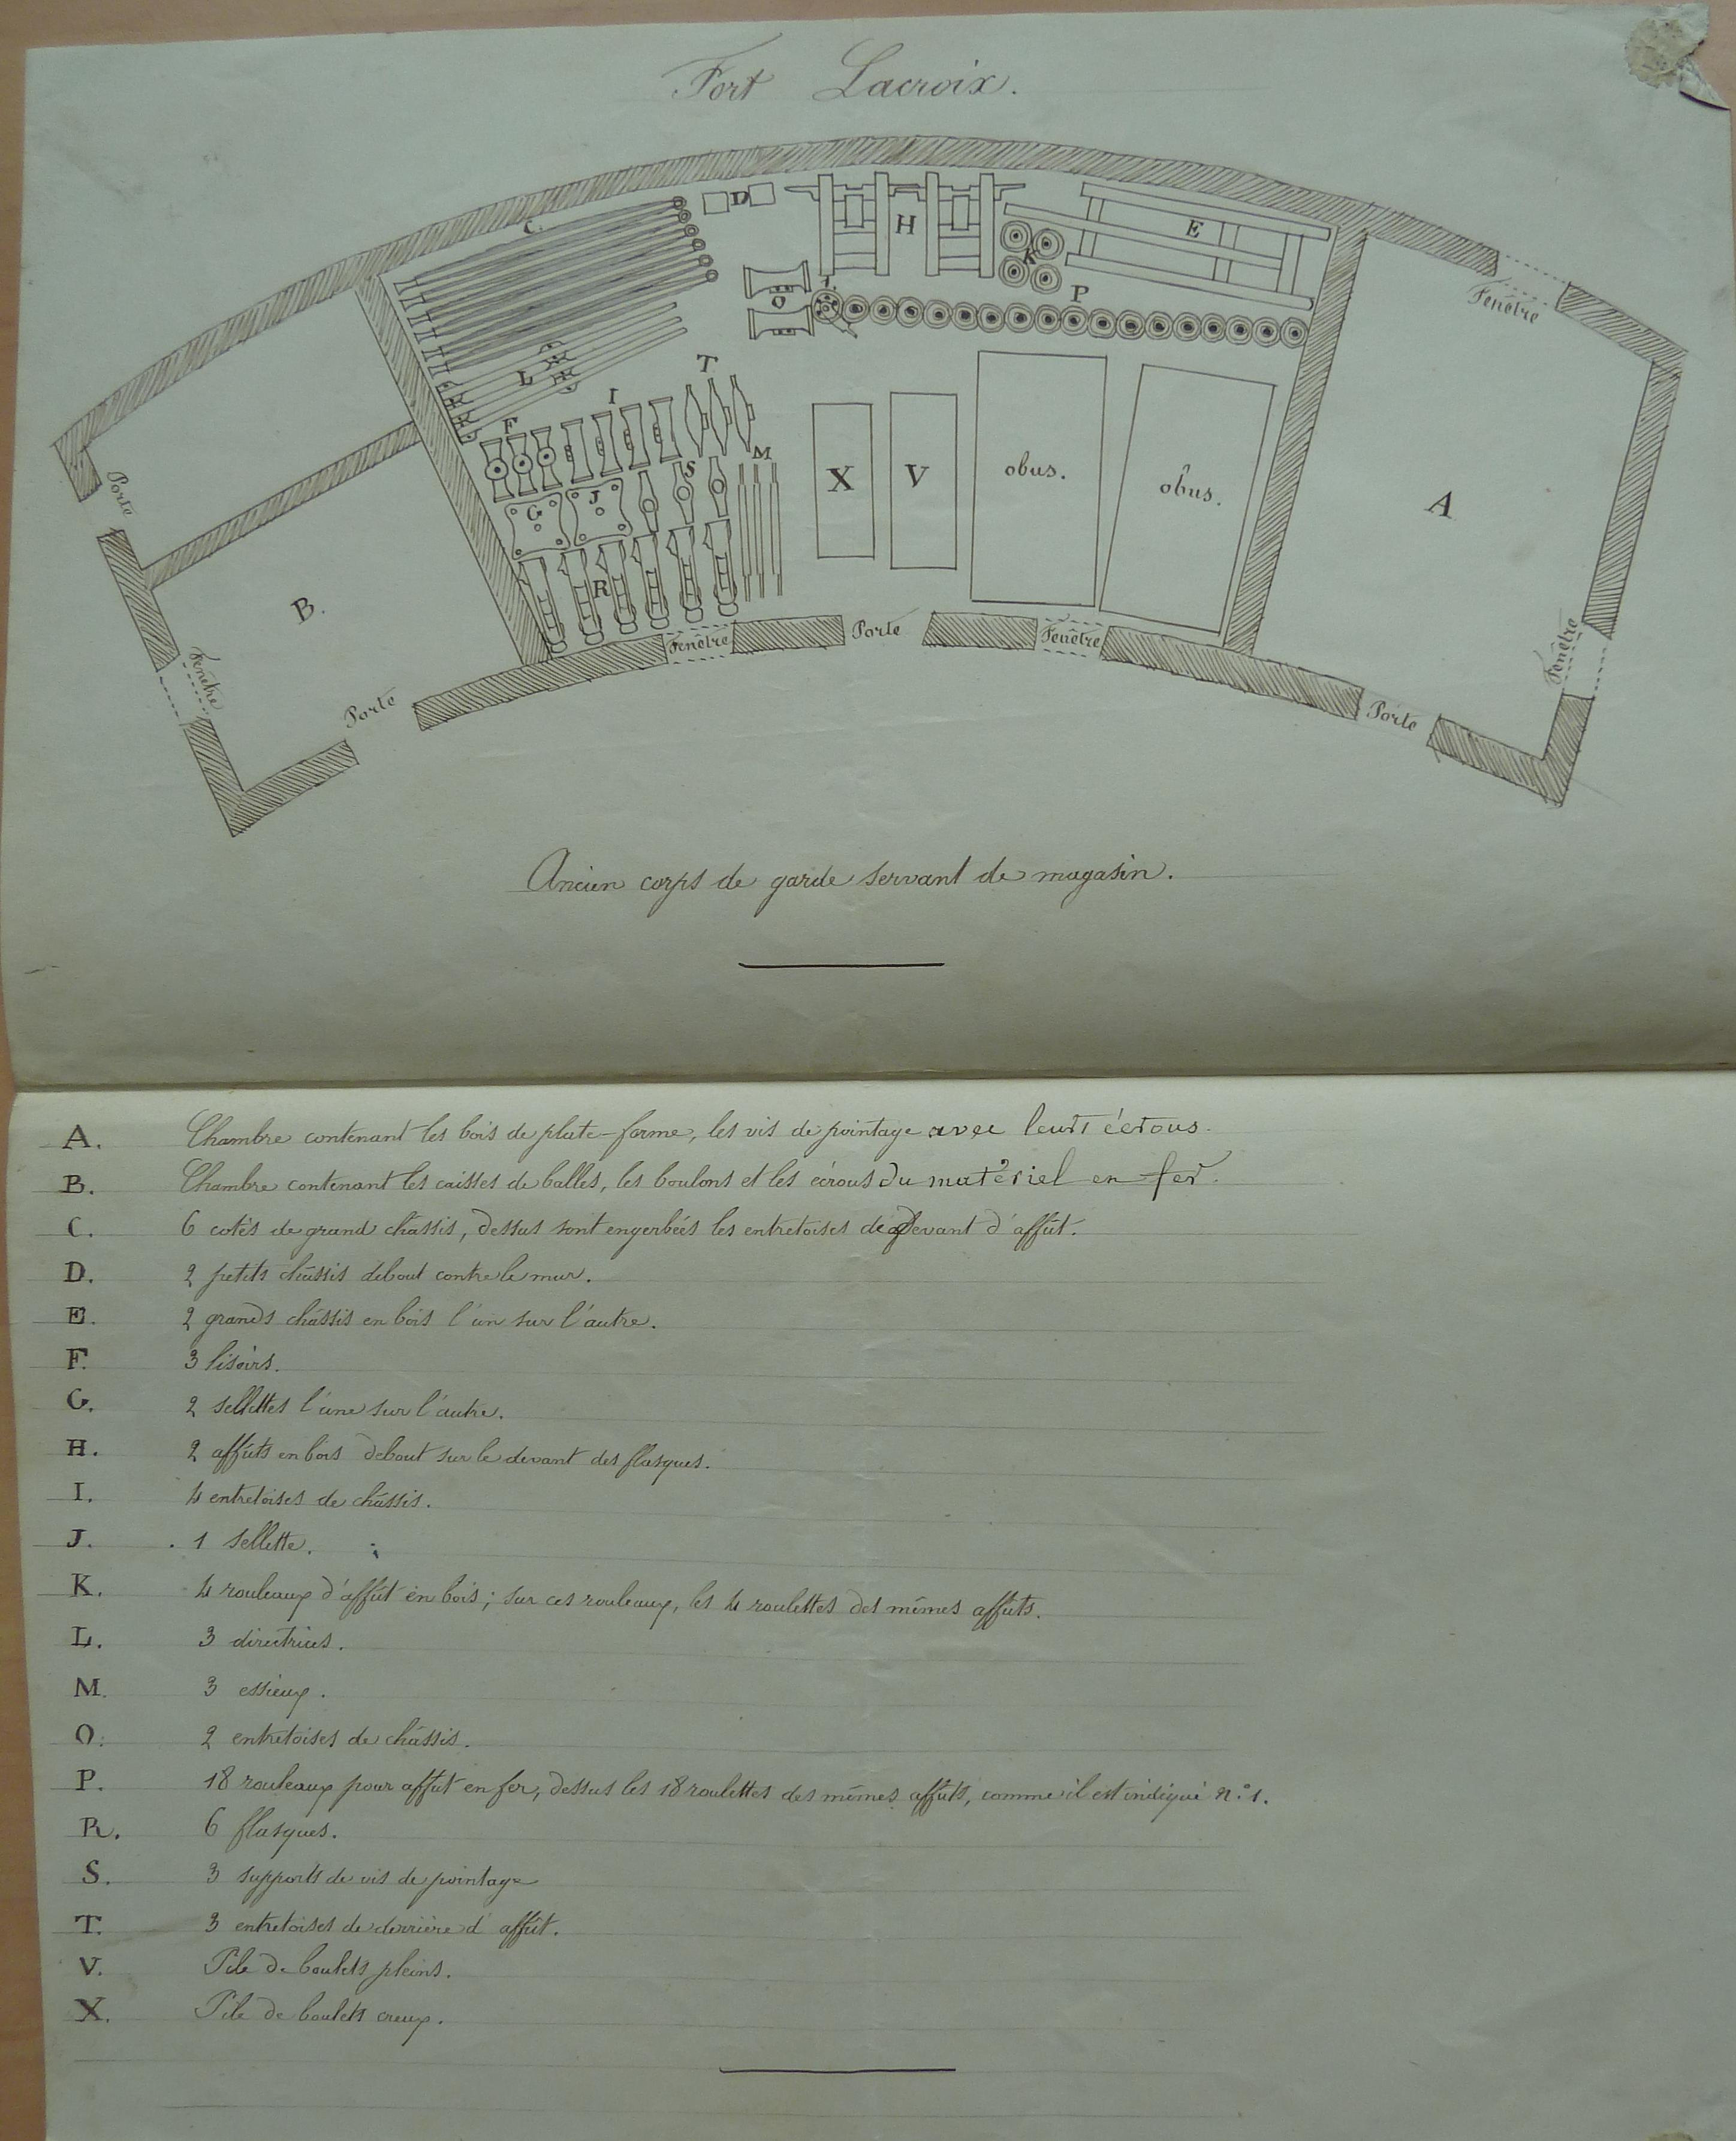 Fort Lacroix.
C.
D
H
E
K
O
1.
P
Fenêtre
L
T
I
F
S
M
G
J
R
X
V
obus.
obus.
A
Porte
B.
Fenêtre
Porte
Fenêtre
Porte
Fenêtre
Porte
Fenêtre
Ancien corps de garde servant de magasin.
A. Chambre contenant les bois de plate-forme, les vis de pointage avec leurs écrous.
B. Chambre contenant les caisses de balles, les boulons et les écrous du matériel en fer.
C. 6 cotés de grand châssis, dessus sont engerbées les entretoises de devant d'affût.
D. 2 petits châssis debout contre le mur.
E. 2 grands châssis en bois l'un sur l'autre.
F. 3 lisoirs.
G. 2 sellettes l'une sur l'autre.
H. 2 affûts en bois debout sur le devant des flasques.
I. 4 entretoises de châssis.
J. 1 sellette.
K. 4 rouleaux d'affût en bois; sur ces rouleaux, les 4 roulettes des mêmes affûts.
L. 3 directrices.
M. 3 essieux.
O. 2 entretoises de châssis.
P. 18 rouleaux pour affut en fer, dessus les 18 roulettes des mêmes affûts, comme il est indiqué n.° 1.
R. 6 flasques.
S. 3 supports de vis de pointage
T. 3 entretoises de derrière d'affût.
V. Pile de boulets pleins.
X. Pile de boulets creux.